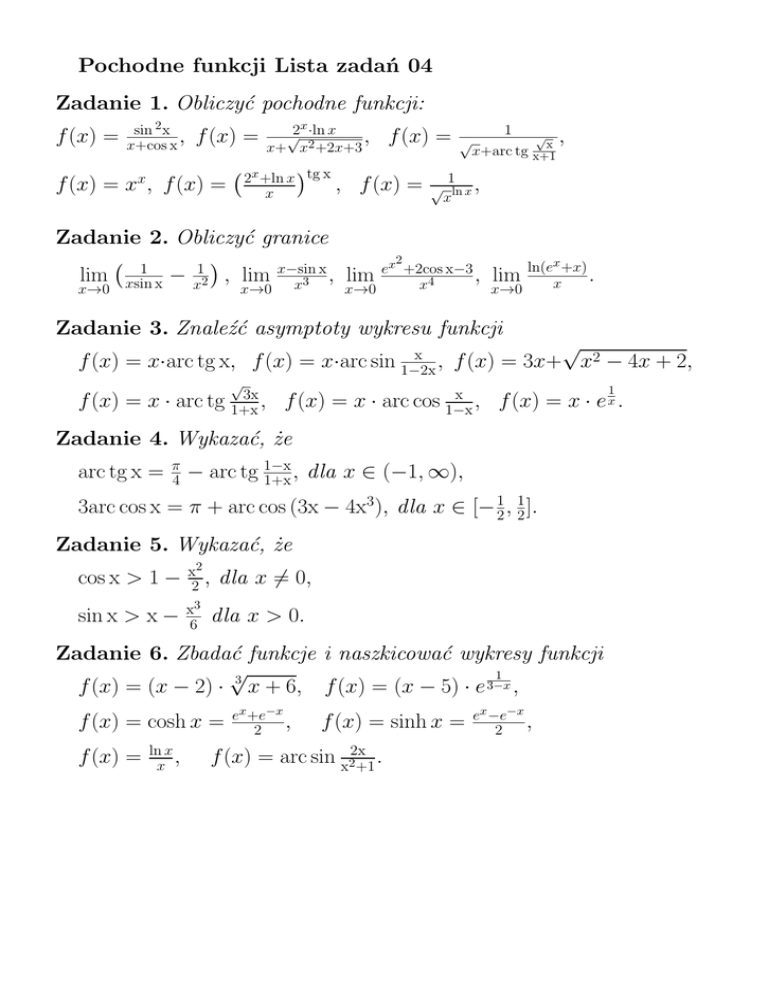 Pochodne funkcji Lista zadań 04
Zadanie 1. Obliczyć pochodne funkcji:
f(x) = \frac{\sin^2 x}{x+\cos x}, f(x) = \frac{2^x \cdot \ln x}{x+\sqrt{x^2+2x+3}}, f(x) = \frac{1}{\sqrt{x}+\text{arc tg} \frac{\sqrt{x}}{x+1}},
f(x) = x^x, f(x) = \left(\frac{2^x+\ln x}{x}\right)^{\text{tg} x}, f(x) = \frac{1}{\sqrt{x}^{\ln x}},
Zadanie 2. Obliczyć granice
\lim_{x→0} \left(\frac{1}{x\sin x} − \frac{1}{x^2}\right), \lim_{x→0} \frac{x−\sin x}{x^3}, \lim_{x→0} \frac{e^{x^2}+2\cos x−3}{x^4}, \lim_{x→0} \frac{\ln(e^x+x)}{x}.
Zadanie 3. Znaleźć asymptoty wykresu funkcji
f(x) = x·arc tg x, f(x) = x·arc sin \frac{x}{1−2x}, f(x) = 3x+\sqrt{x^2 − 4x + 2},
f(x) = x · arc tg \frac{\sqrt{3}x}{1+x}, f(x) = x · arc cos \frac{x}{1−x}, f(x) = x · e^{\frac{1}{x}}.
Zadanie 4. Wykazać, że
arc tg x = \frac{π}{4} − arc tg \frac{1−x}{1+x}, dla x ∈ (−1, ∞),
3arc cos x = π + arc cos (3x − 4x^3), dla x ∈ [−\frac{1}{2}, \frac{1}{2}].
Zadanie 5. Wykazać, że
cos x > 1 − \frac{x^2}{2}, dla x ≠ 0,
sin x > x − \frac{x^3}{6} dla x > 0.
Zadanie 6. Zbadać funkcje i naszkicować wykresy funkcji
f(x) = (x − 2) · \sqrt[3]{x + 6}, f(x) = (x − 5) · e^{\frac{1}{3−x}},
f(x) = cosh x = \frac{e^x+e^{−x}}{2}, f(x) = sinh x = \frac{e^x−e^{−x}}{2},
f(x) = \frac{\ln x}{x}, f(x) = arc sin \frac{2x}{x^2+1}.